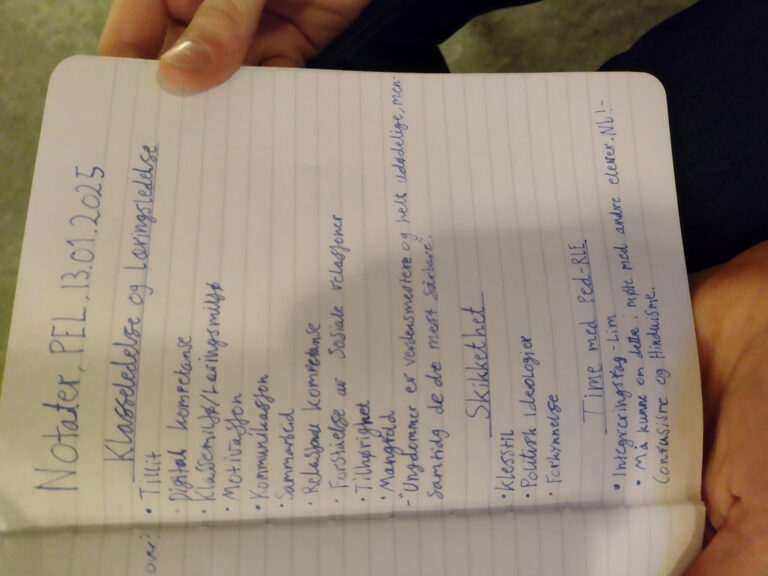 Notater, PEL, 13.01.2025
Klasseledelse og Læringsledelse
• Tillit
• Digital kompetanse
• Klassemiljø/Læringsmiljø
• Motivasjon
• Kommunikasjon
• Samarbeid
• Relasjons kompetanse
• Forståelse av sosiale relasjoner
• Tilhørighet
• Mangfold
- "Ungdommer er verdensmestere og helt udødelige, men
samtidig de de mest sårbare.
Skikkethet
• Klesstil
• Politisk ideologier
• Forkynnelse
Time med Ped-RLE
• Integreringsfag - Lim
• Må kunne om dette i møte med andre elever. Nb!-
Confusisme og Hinduisme.